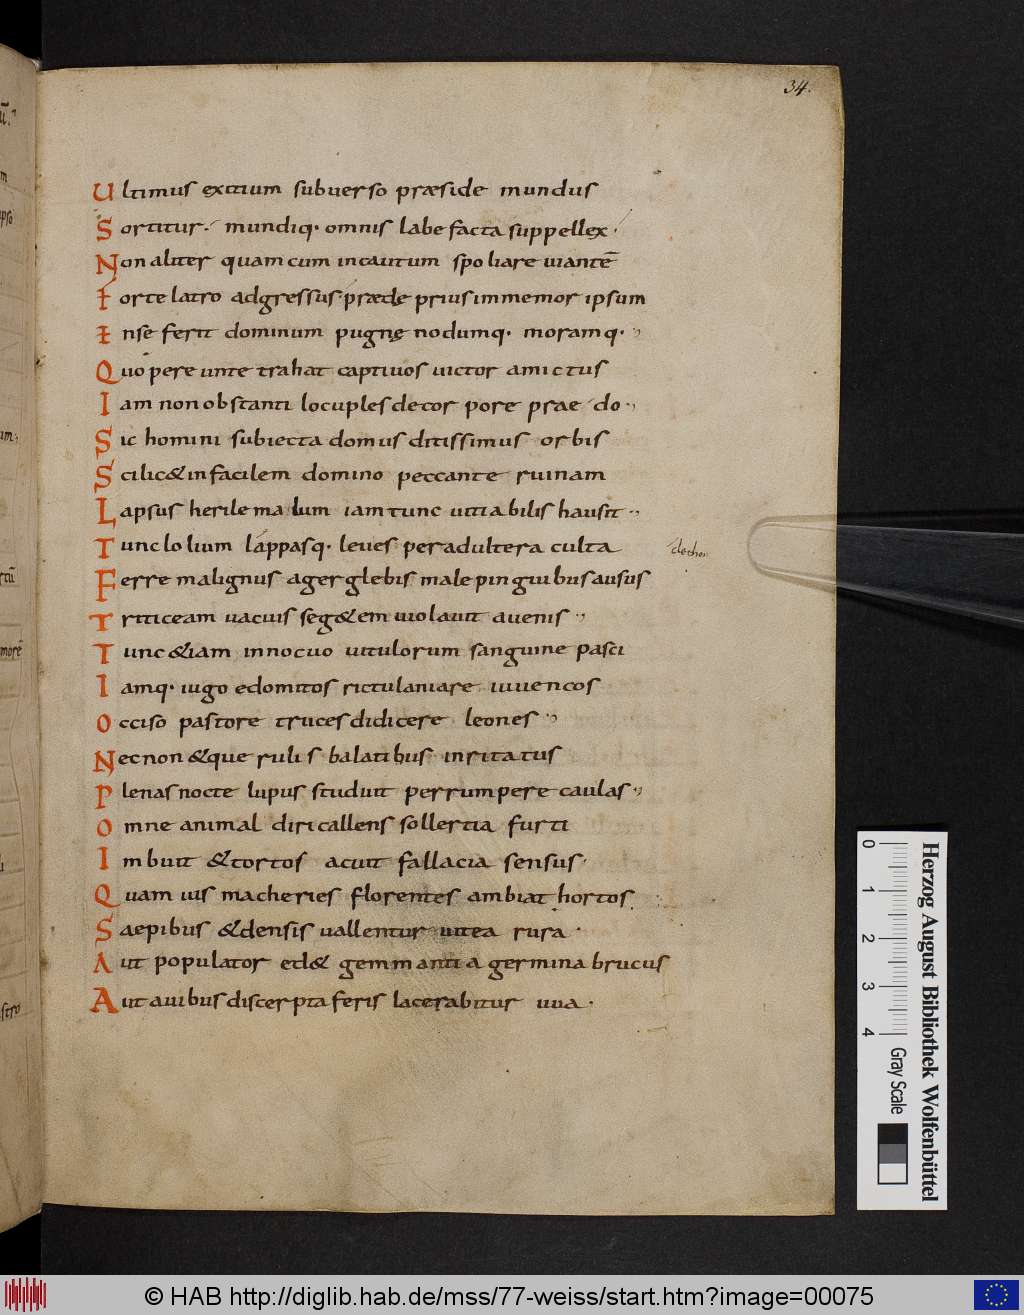 34.
Ultimus exitium subuerso præside mundus
Sortitur. mundiq· omnis labefacta suppellex·
Non aliter quam cum incautum spoliare uiantē
Forte latro adgressus præde prius immemor ipsum
Inse ferit dominum pugnę nodumq· moramq·
Quo pereunte trahat captiuos uictor amictus
Iam non obstanti locuples decorpore praedo·
Sic homini subiecta domus ditissimus orbis
Scilic& in facilem domino peccante ruinam
Lapsus herile malum iam tunc uitiabilis hausit
Tunc lolium lappasq· leues per adultera culta
Ferre malignus ager glebis male pinguibus ausus
Triticeam uacuis seg&em uiolauit auenis
Tunc &iam innocuo uitulorum sanguine pasci
Iamq· iugo edomitos rictu laniare iuuencos
Occiso pastore truces didicere leones
Nec non &querulis balatibus inritatus
Plenas nocte lupus studuit perrumpere caulas
Omne animal diri callens sollertia furti
Imbuit &tortos acuit fallacia sensus·
Quamuis macheries florentes ambiat hortos
Saepibus &densis uallentur uitea rura·
Aut populator ed& gemmantia germina brucus
Aut auibus discerpta feris lacerabitur uua·
Herzog August Bibliothek Wolfenbüttel
0 1 2 3 4 Gray Scale
© HAB http://diglib.hab.de/mss/77-weiss/start.htm?image=00075